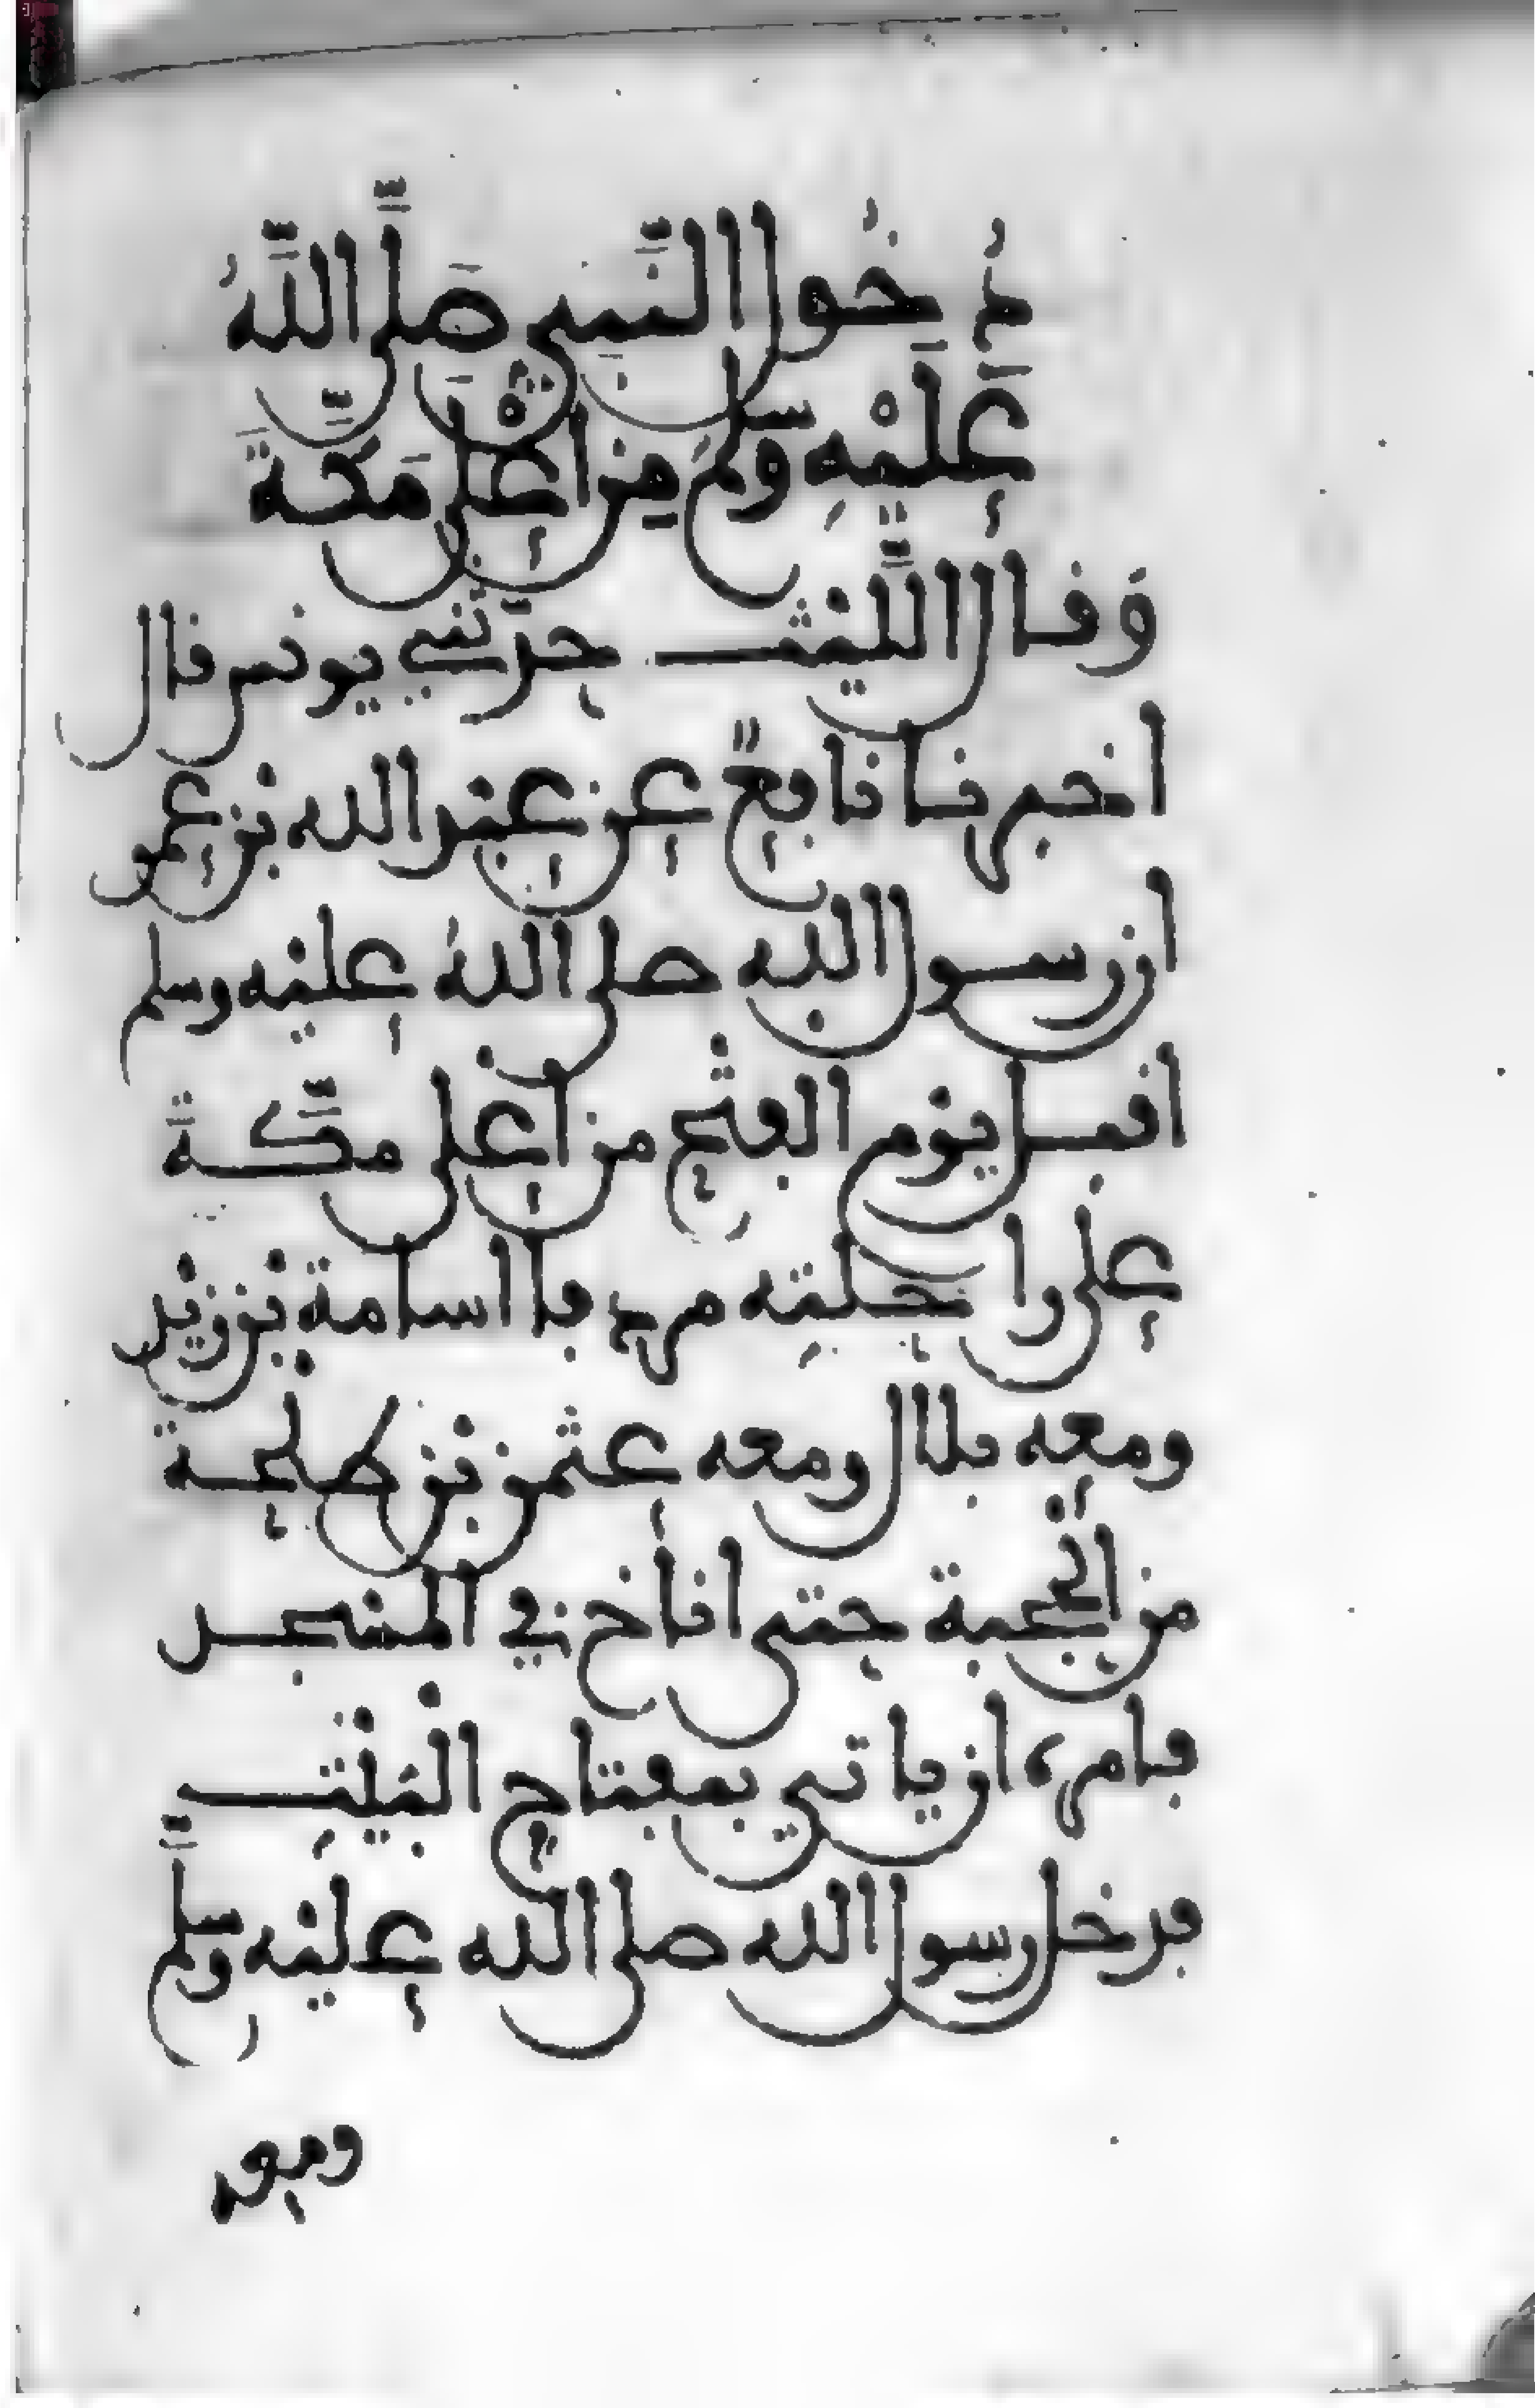 دُخُولُ النَّبِيِّ صَلَّى اللَّهُ
عَلَيْهِ وَسَلَّمَ مِنْ أَعْلَى مَكَّةَ
وَقال اللَّيْث حدّثني يونس قال
اخبرنا نافعٌ عن عبْد الله بْن عمر
ان رسول الله صلى اللهُ عليْه وسلم
اقبل يوْم الفتْح من أعْلى مكَّةَ
على راحلتِه مردفا اسامة بْن زيْد
ومعه بلال ومعه عثمن بْن طلحة
من الْحجبة حتى اناخ في الْمسْجد
فامره ان ياتي بمفتاح الْبَيْتِ
فدخل رسول الله صلى الله عليْه وسلَّم
ومعه